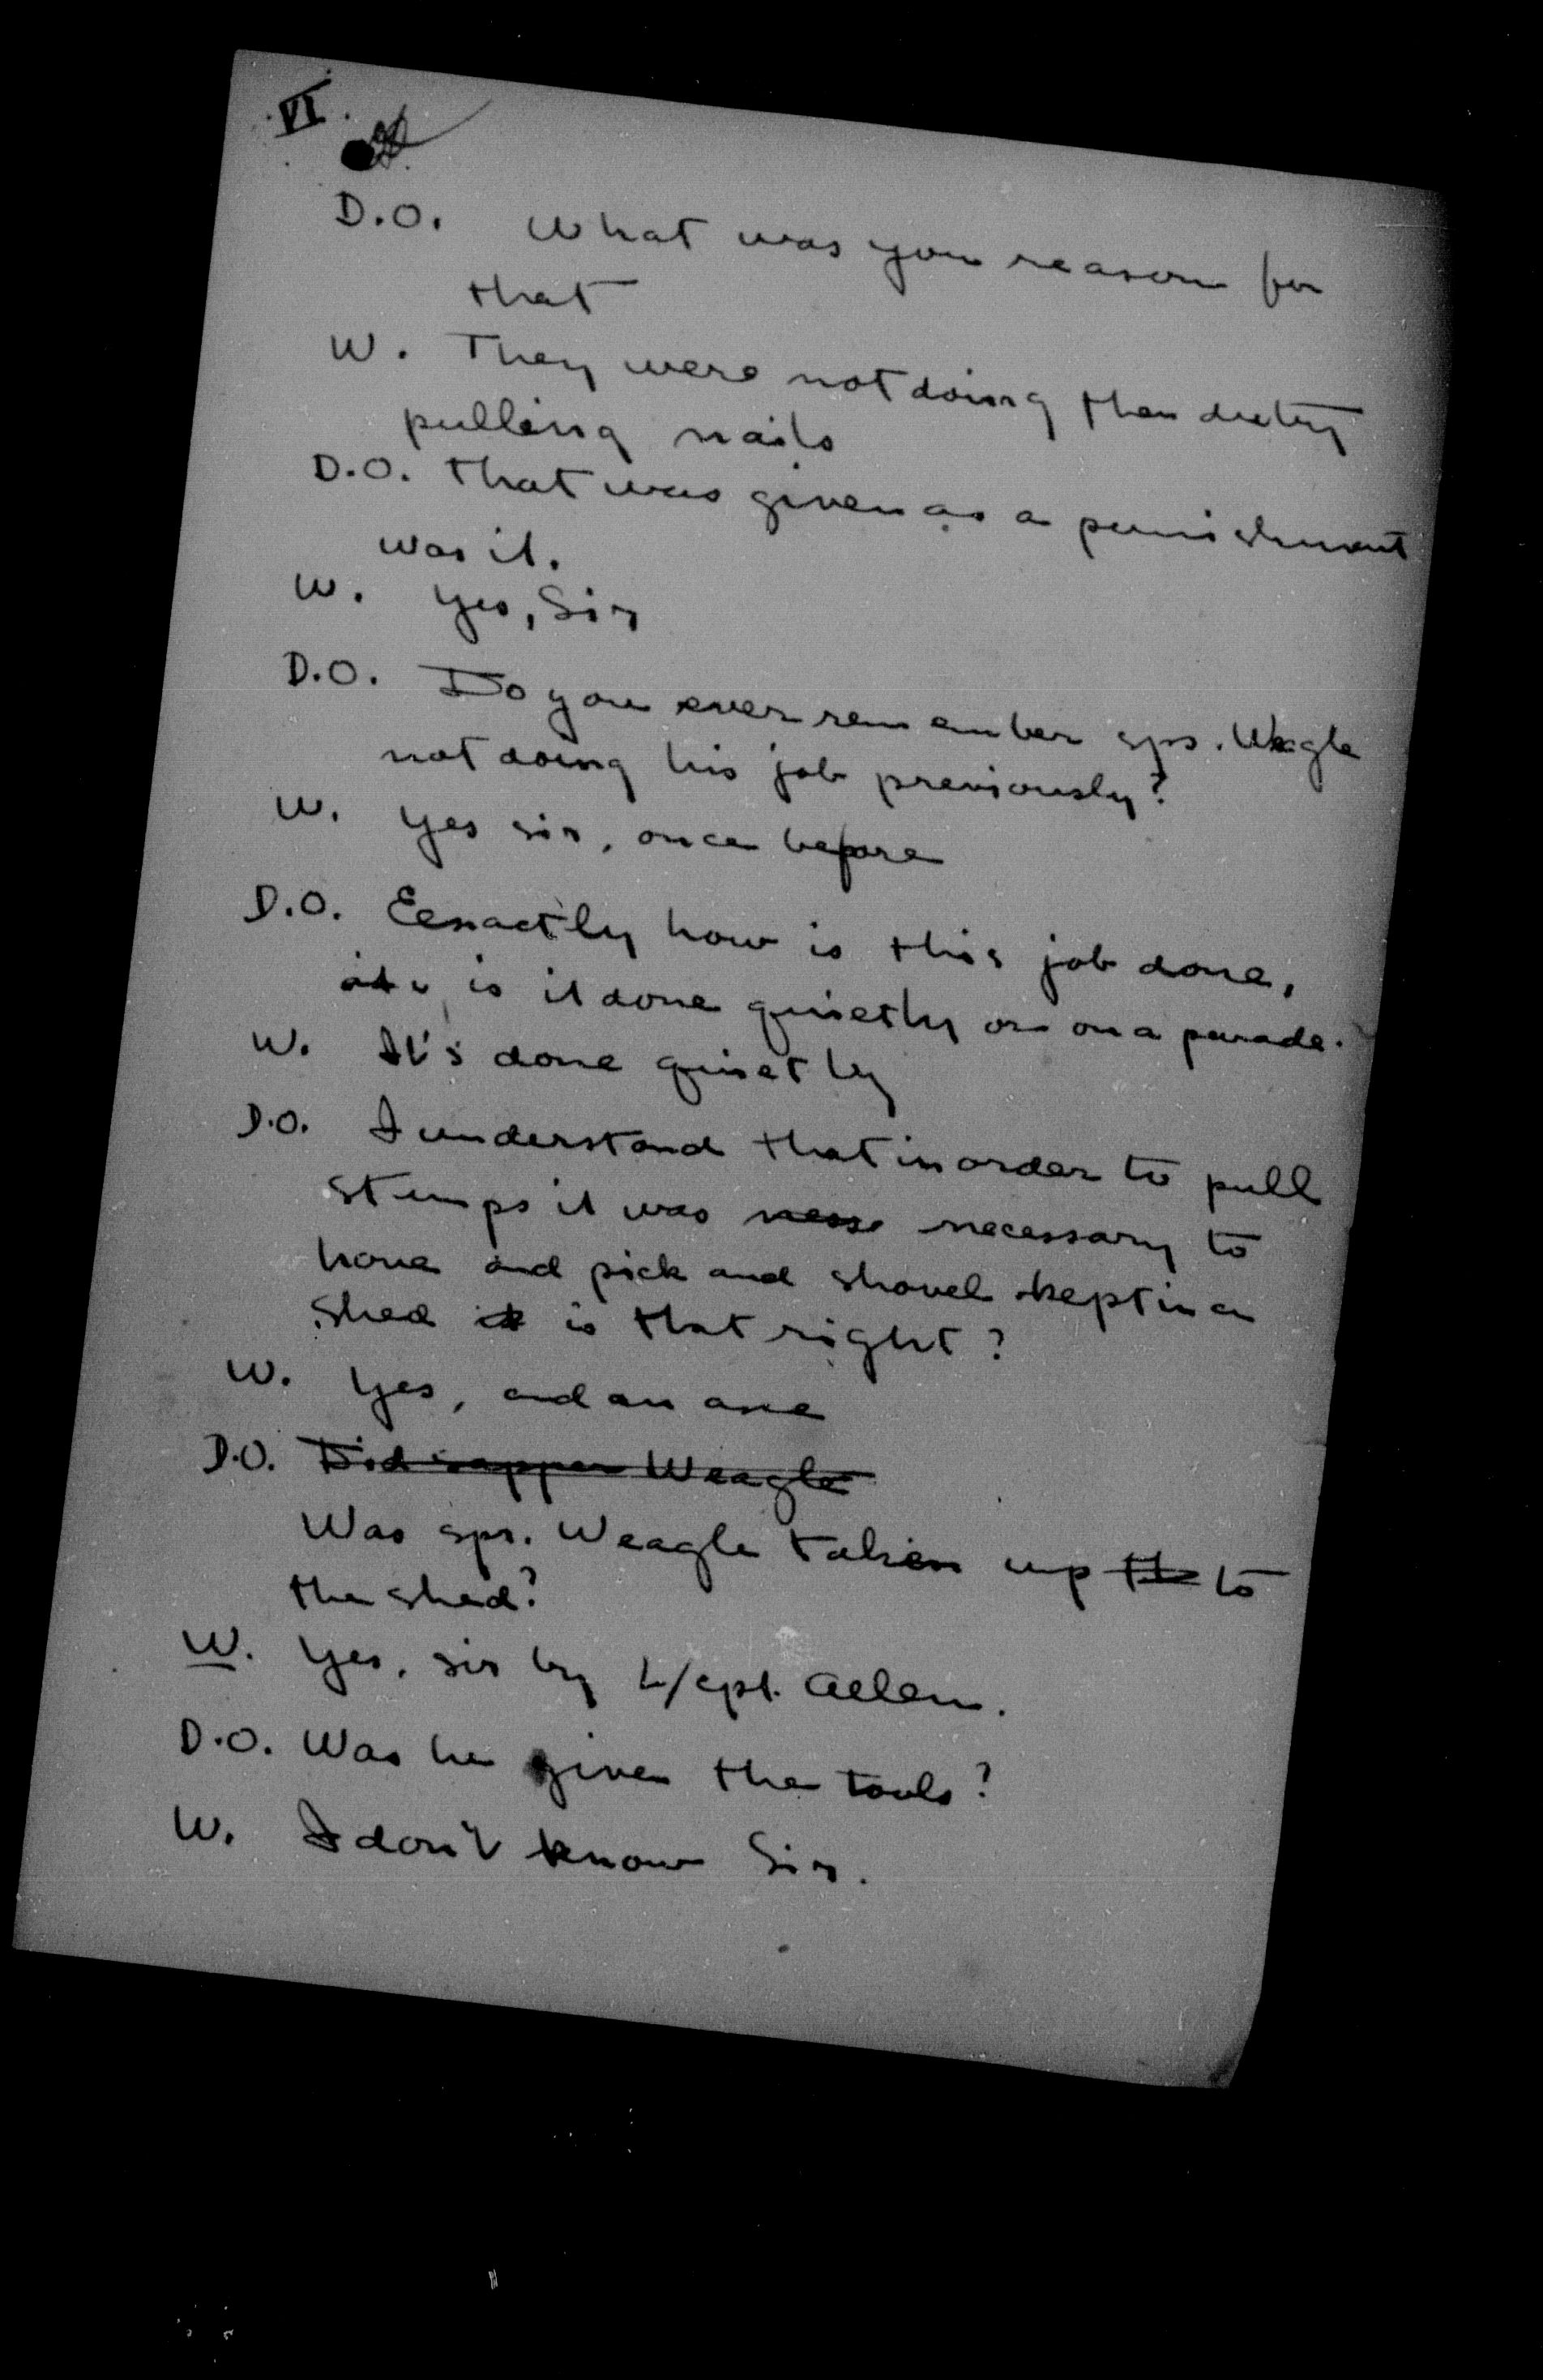 VI.
D.O. What was your reason for
that
W. They were not doing their duty
pulling nails
D.O. that was given as a punishment
was it.
W. Yes, Sir
D.O. Do you ever remember spr. Weagle
not doing his job previously?
W. Yes sir, once before
D.O. Exactly how is this job done,
is it done quietly or on a parade.
W. It's done quietly
D.O. I understand that in order to pull
stumps it was ness necessary to
have and pick and shovel kept in a
shed it is that right?
W. Yes, and an axe
D.O. Did sapper Weagle
Was spr. Weagle taken up the to
the shed?
W. Yes, sir by L/cpl. Allen.
D.O. Was he given the tools?
W. I don't know Sir.